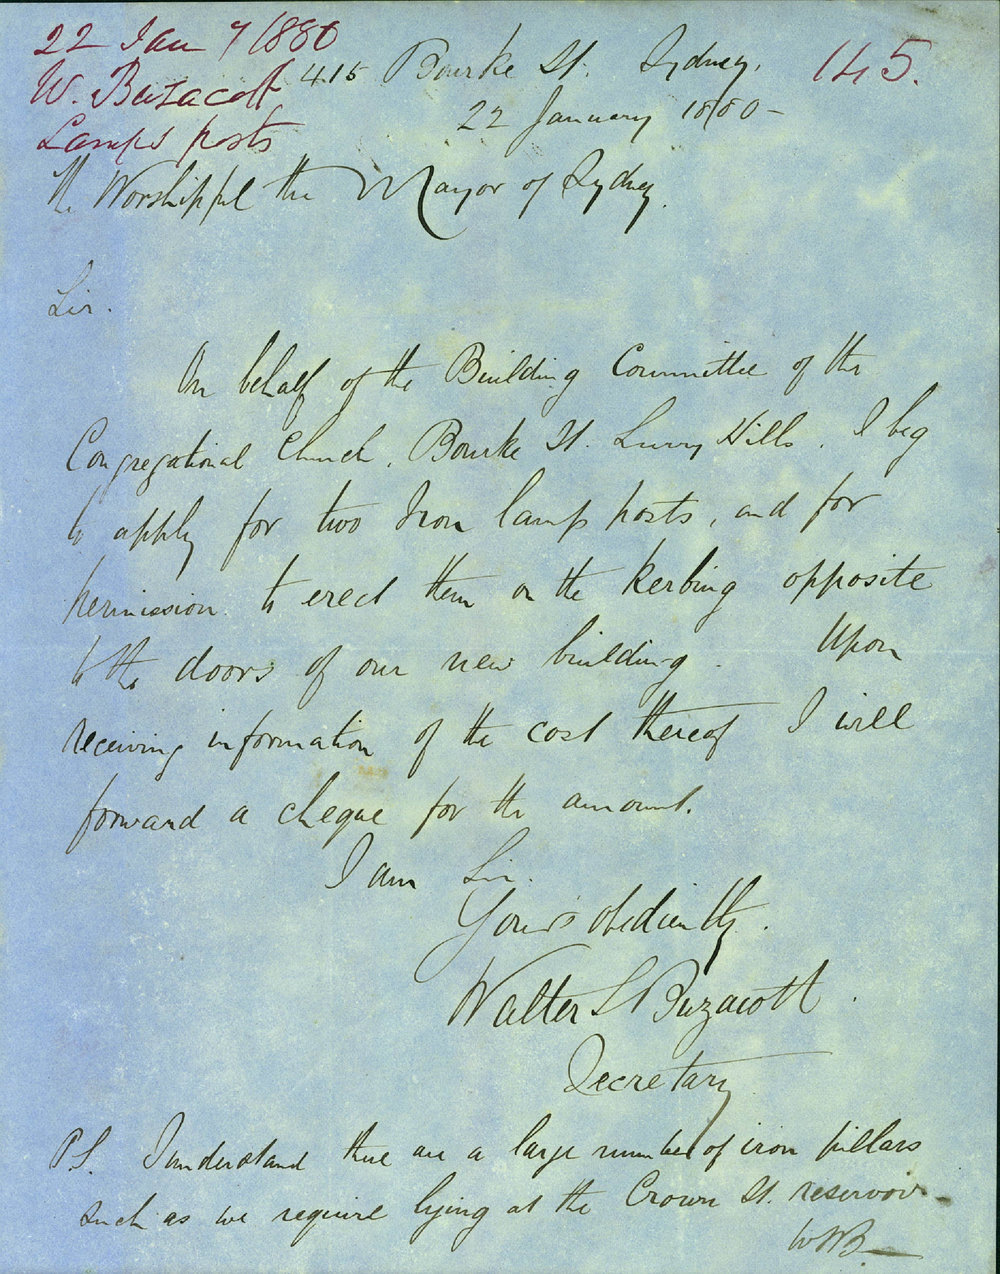 22 Jan 7/1880
W. Buzacott
Lamps posts
145.
415 Bourke St. Sydney.
22 January 1880-
The Worshipful the Mayor of Sydney.
Sir.
On behalf of the Building Committee of the
Congregational Church, Bourke St. Surry Hills. I beg
to apply for two Iron lamp posts, and for
permission to erect them on the kerbing opposite
to the doors of our new building. Upon
receiving information of the cost thereof I will
forward a cheque for the amount.
I am Sir.
Yours obediently.
Walter S Buzacott.
Secretary
PS. I understand there are a large number of iron pillars
such as we require lying at the Crown St. reservoir.
WSB